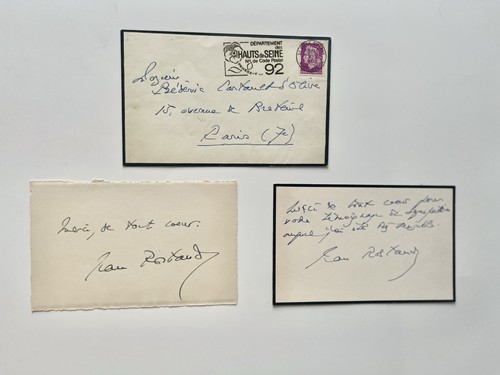 DÉPARTEMENT
des
HAUTS de SEINE
N° de Code Postal
92
Monsieur
Frédéric Castault d'Olive
15, avenue de Breteuil
Paris (7e)
Merci, de tout coeur.
Jean Rostand
Merci de tout coeur pour
votre témoignage de sympathie
auquel j'ai été très sensible.
Jean Rostand